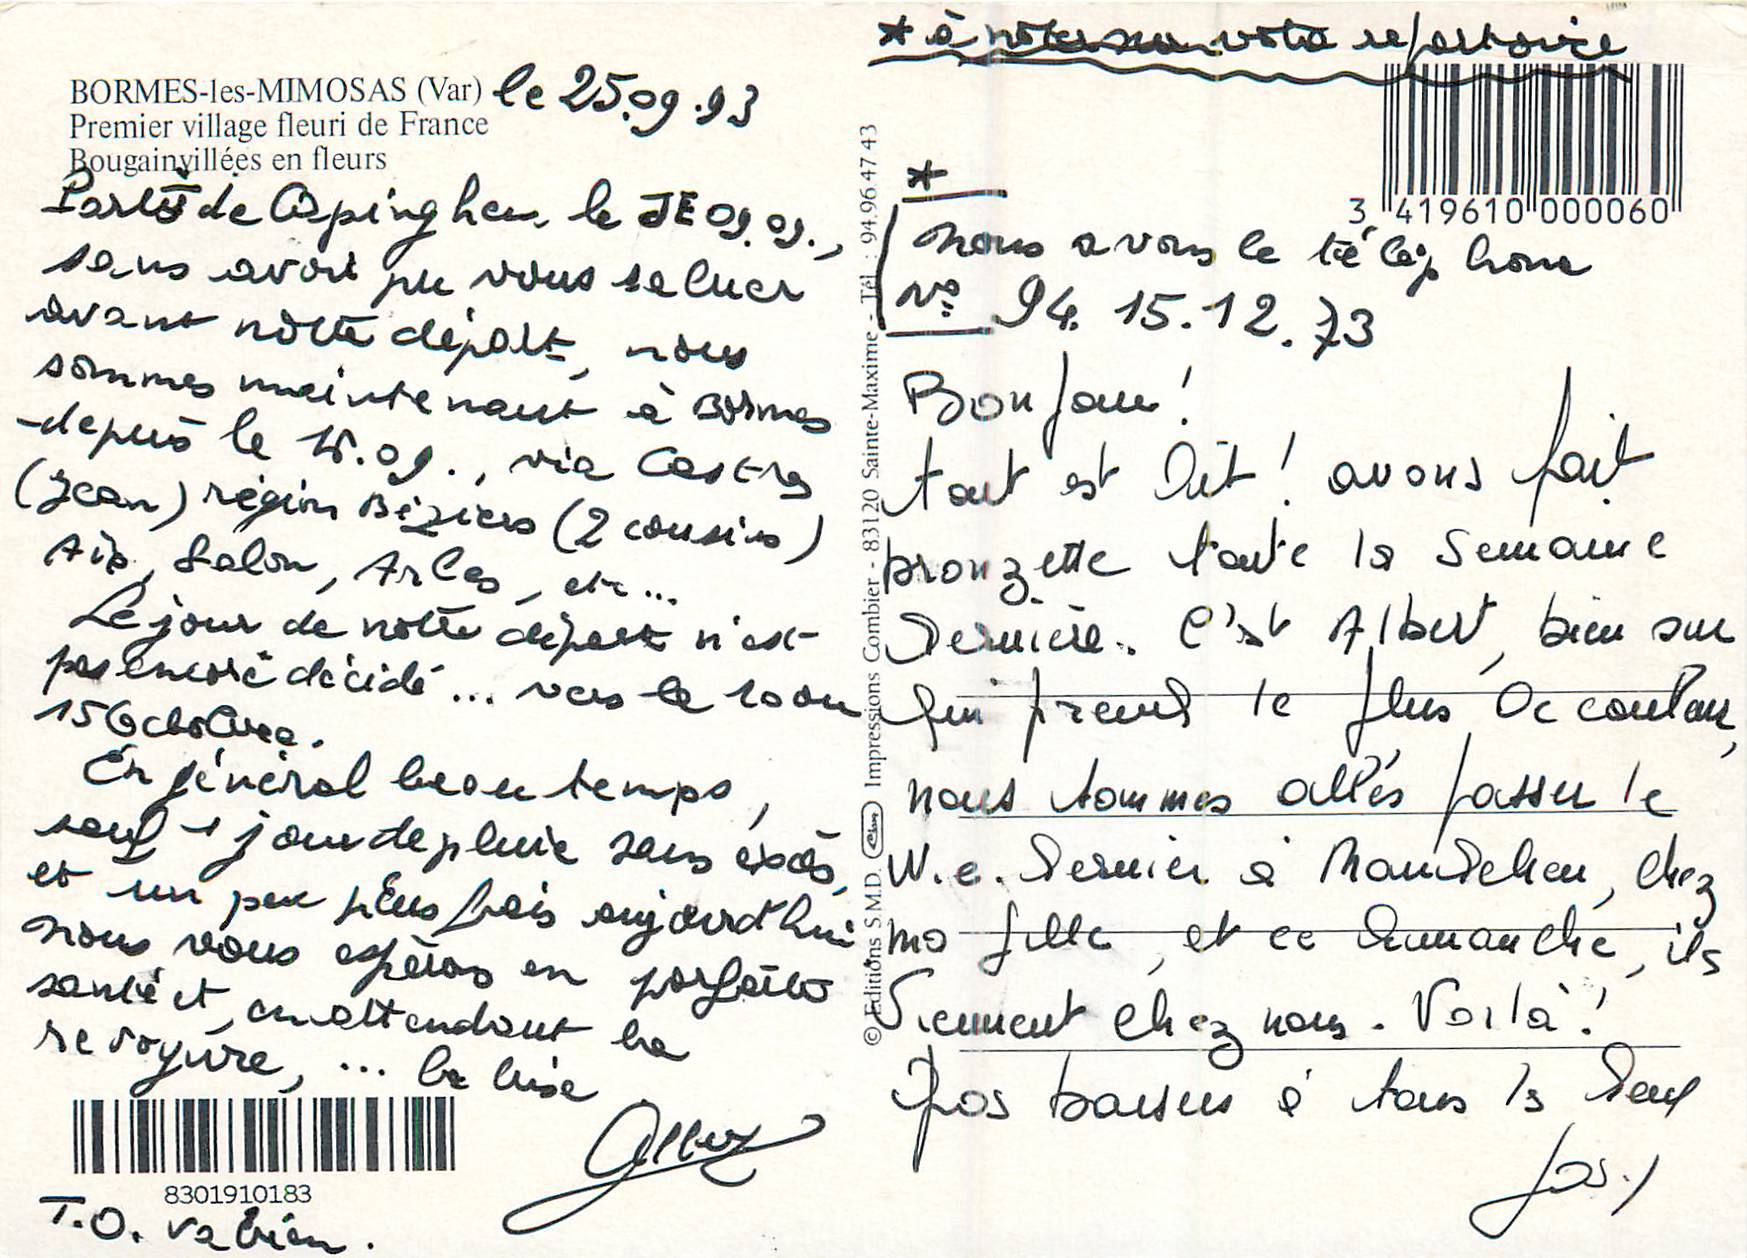 BORMES-les-MIMOSAS (Var) le 25.09.93
Premier village fleuri de France
Bougainvillées en fleurs
Partis de le JE 09.09.,
sans avoir pu vous saluer
avant notre départ, nous
sommes maintenant à Bormes
depuis le 15.09., via Castres
(Jean) région Béziers (2 cousins)
Aix, Salon, Arles, etc...
Le jour de notre départ n'est
pas encore décidé... vers le 10 ou
15 Octobre.
En général beau temps,
sauf 1 jour de pluie sans excès,
et un peu plus frais aujourd'hui
nous vous espérons en parfaite
santé et, en attendant la
revoyure, ... la bise
T.O. va bien.
8301910183
© Editions S.M.D. Impressions Combier - 83120 Sainte-Maxime - Tél. : 94.96.47 43
* à noter sur votre repertoire
3 419610 000060
*
nous avons le téléphone
N° 94.15.12.73
Bonjour!
tout est dit! avons fait
bronzette toute la semaine
dernière. C'est Albert, bien sur
qui prend le plus de couleur,
nous sommes allés passer le
W.e. dernier à Mandelieu, chez
ma fille, et ce dimanche, ils
viennent chez nous. Voilà!
Gros baisers à tous les deux
Jos.